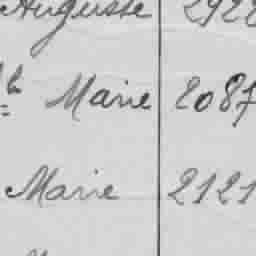 Auguste 292
Marie 2087
Marie 2121